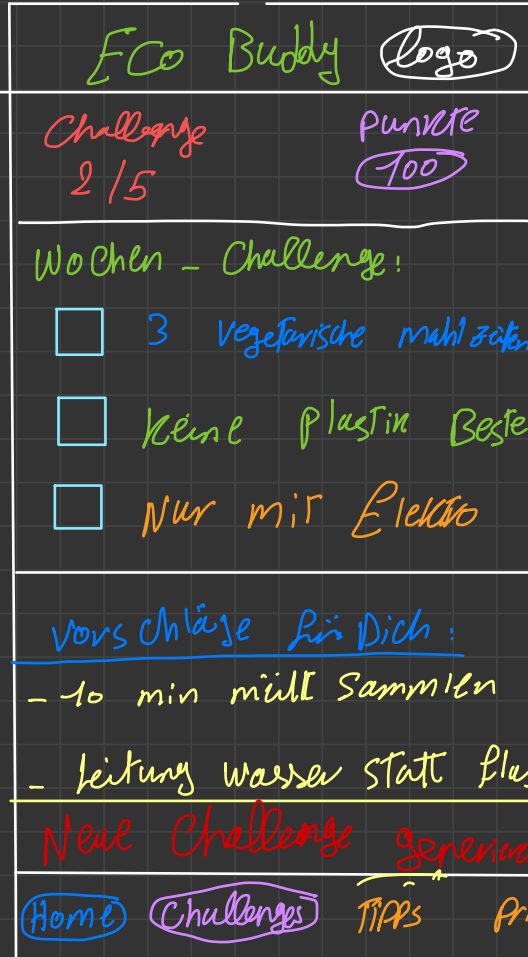 Eco Buddy logo
Challenge Punkte
2/5 100
Wochen - Challenge:
3 Vegetarische mahlzeiten
Keine Plastik Beste
Nur mit Elektro
Vorschläge für Dich:
- 10 min müll Sammlen
- Leitung wasser statt fla
Neue Challenge generier
Home Challenges Tipps Pr